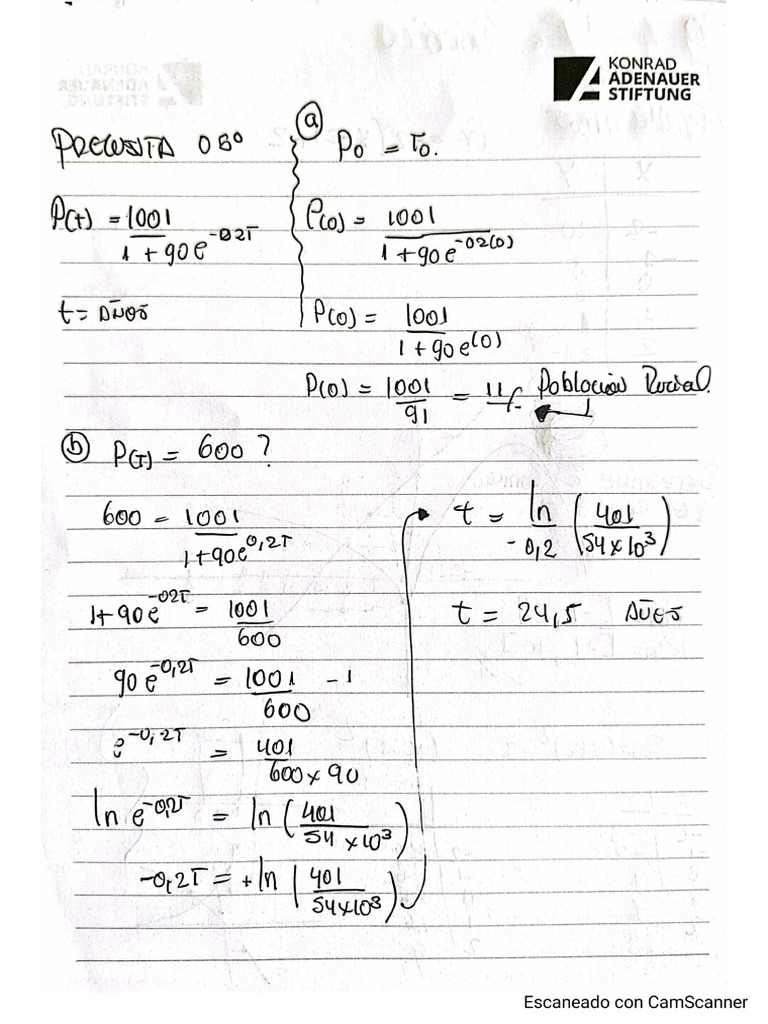 KONRAD
ADENAUER
STIFTUNG
PREGUNTA 06°
P(t) = 1001 / 1 + 90e^-0.2T
t = AÑOS
ⓐ P0 = T0.
P(0) = 1001 / 1 + 90e^-02(0)
P(0) = 1001 / 1 + 90e^(0)
P(0) = 1001 / 91 = 11 Población Inicial.
ⓑ P(T) = 600 ?
600 = 1001 / 1 + 90e^0,2T
1 + 90e^-02T = 1001 / 600
90e^-0,2T = 1001 / 600 - 1
e^-0,2T = 401 / 600 x 90
ln e^-0,2T = ln (401 / 54 x 10^3)
-0,2T = + ln (401 / 54 x 10^3)
t = ln / -0,2 (401 / 54 x 10^3)
t = 24,5 AÑOS
Escaneado con CamScanner